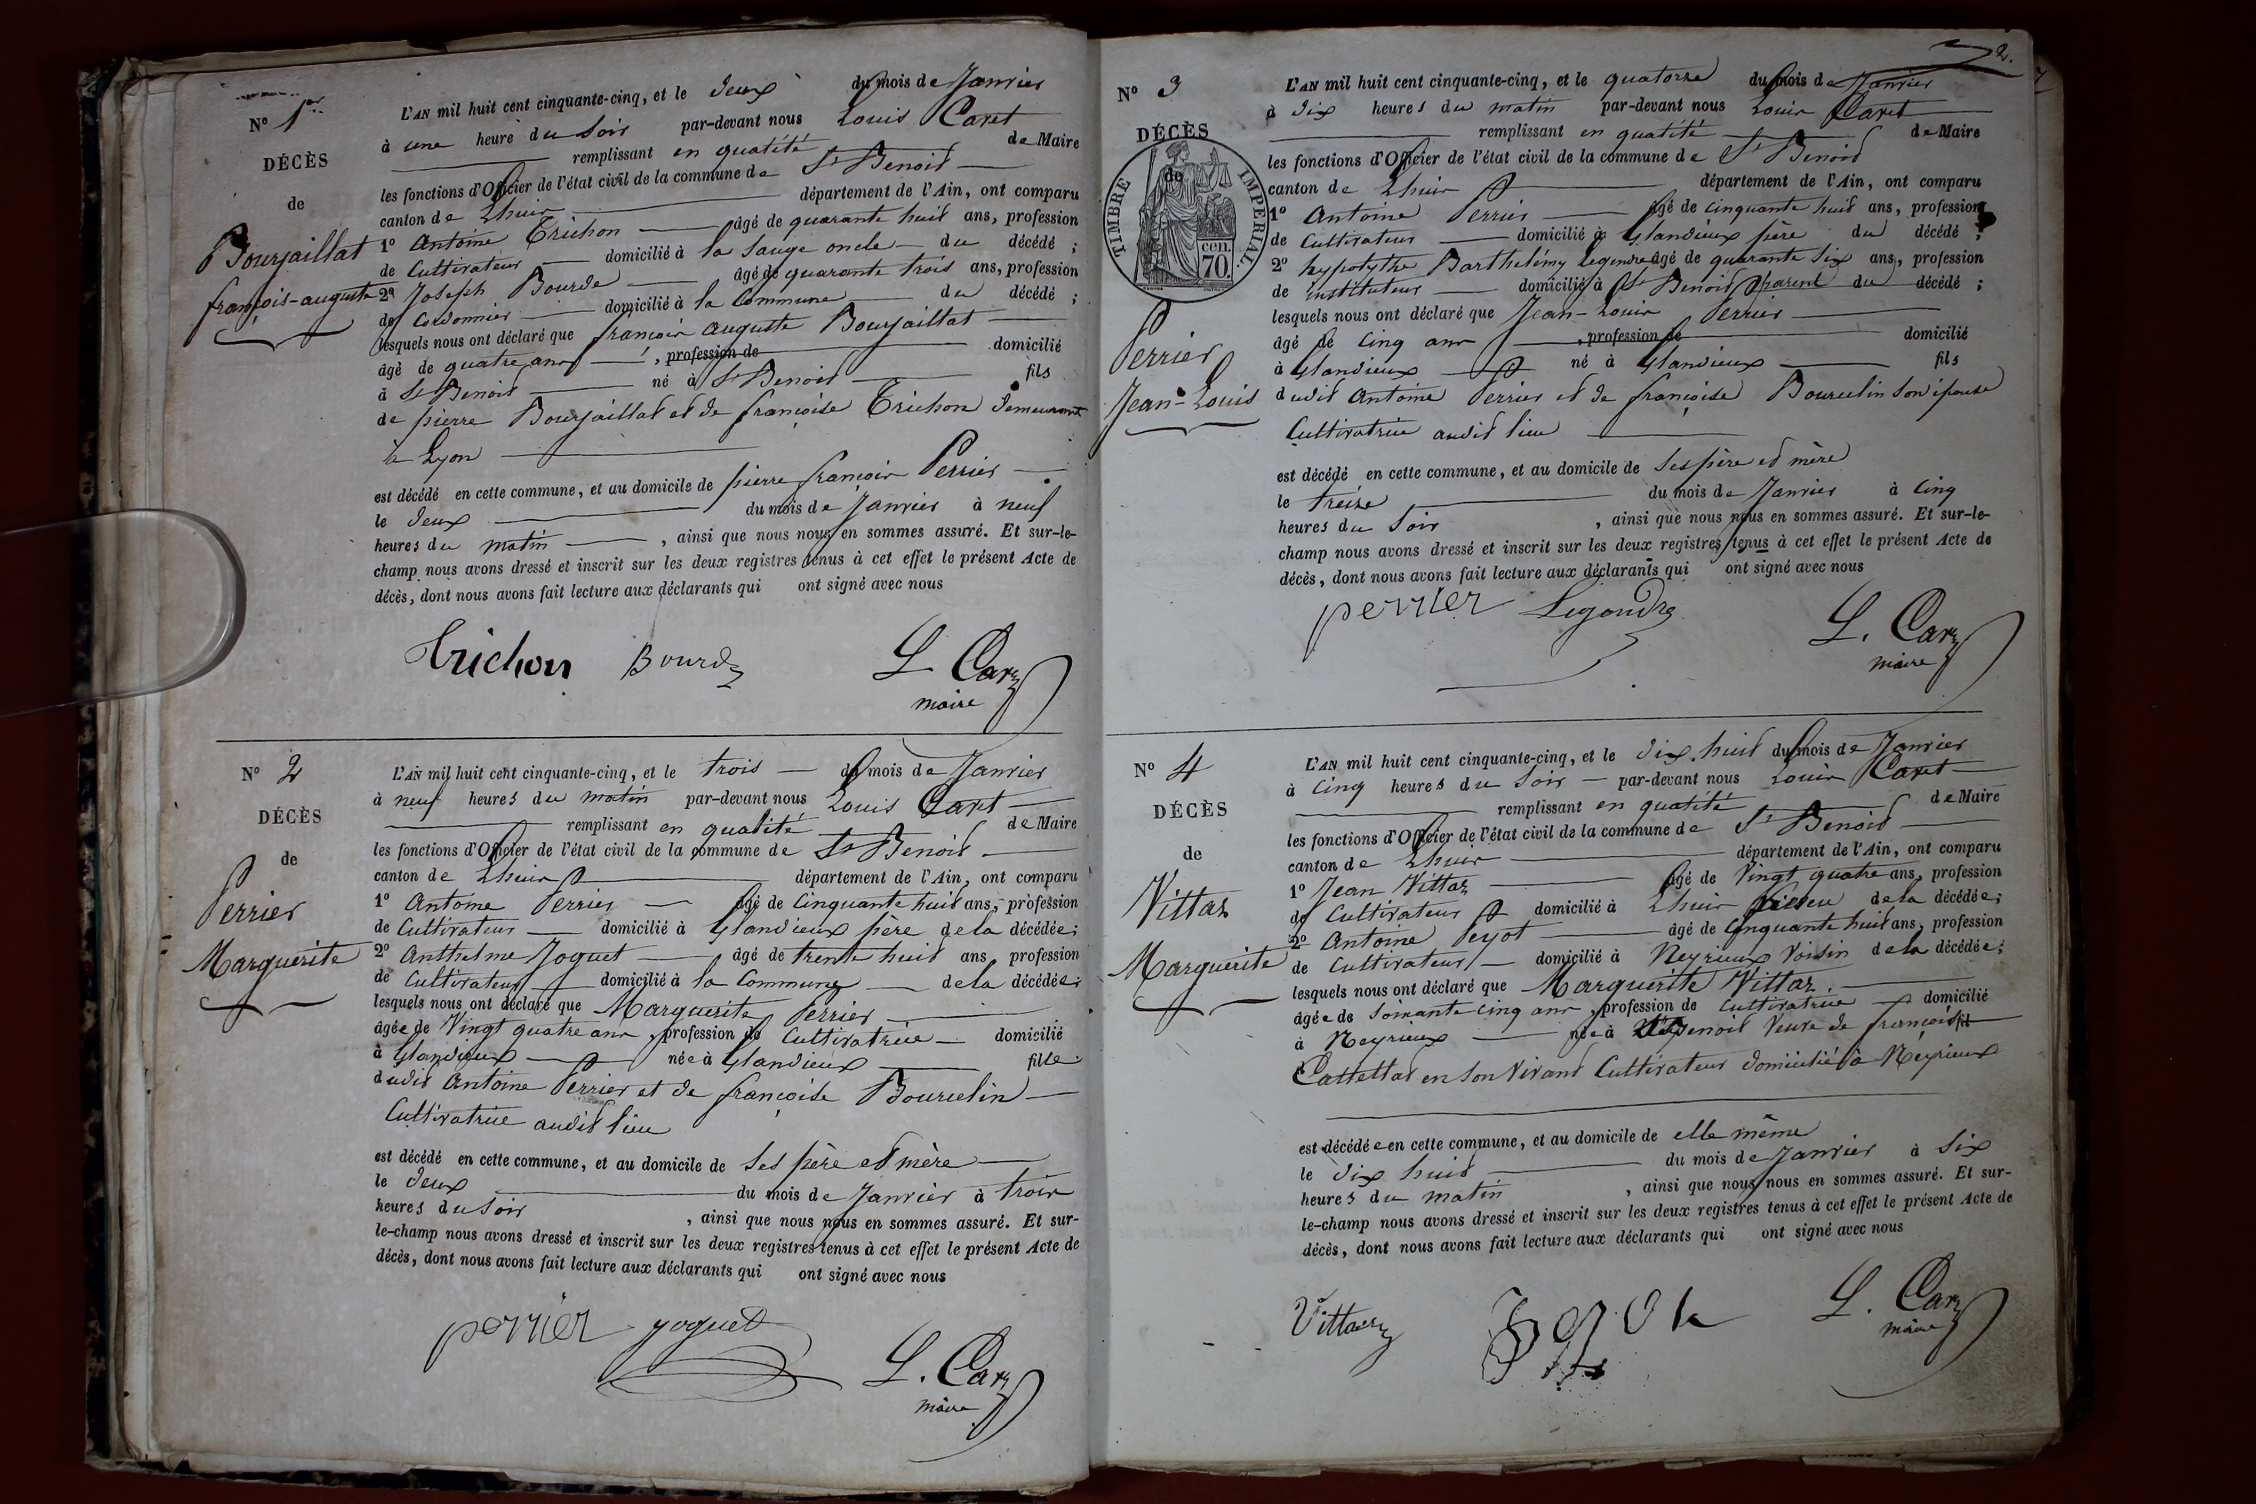 N° 1er
DÉCÈS
de
Bourjaillat
françois-auguste
L'AN mil huit cent cinquante-cinq, et le deux du mois de Janvier
à une heure du soir par-devant nous Louis Caret
remplissant en qualité de Maire
les fonctions d'Officier de l'état civil de la commune de St Benoit
canton de Lhuis département de l'Ain, ont comparu
1° Antoine Trichon âgé de quarante huit ans, profession
de Cultivateur domicilié à la Sauge oncle du décédé ;
2° Joseph Bourde âgé de quarante trois ans, profession
de Cordonnier domicilié à la Commune du décédé ;
lesquels nous ont déclaré que françois auguste Bourjaillat
âgé de quatre ans , profession de domicilié
à St Benoit né à St Benoit fils
de pierre Bourjaillat et de françoise Trichon demeurant
à Lyon
est décédé en cette commune, et au domicile de pierre françois Perrier
le deux du mois de Janvier à neuf
heures du matin , ainsi que nous nous en sommes assuré. Et sur-le-
champ nous avons dressé et inscrit sur les deux registres tenus à cet effet le présent Acte de
décès, dont nous avons fait lecture aux déclarants qui ont signé avec nous
Trichon Bourde L. Caret
maire
N° 2
DÉCÈS
de
Perrier
Marguerite
L'AN mil huit cent cinquante-cinq, et le trois du mois de Janvier
à neuf heures du matin par-devant nous Louis Caret
remplissant en qualité de Maire
les fonctions d'Officier de l'état civil de la commune de St Benoit
canton de Lhuis département de l'Ain, ont comparu
1° Antoine Perrier âgé de Cinquante huit ans, profession
de Cultivateur domicilié à Glandieux père de la décédée ;
2° Anthelme Joguet âgé de trente huit ans profession
de Cultivateur domicilié à la Commune de la décédée ;
lesquels nous ont déclaré que Marguerite Perrier
âgée de Vingt quatre ans , profession de Cultivatrice domicilié
à Glandieux née à Glandieux fille
dudit Antoine Perrier et de françoise Bourcelin
Cultivatrice audit lieu
est décédé en cette commune, et au domicile de ses père et mère
le deux du mois de Janvier à trois
heures du soir , ainsi que nous nous en sommes assuré. Et sur-
le-champ nous avons dressé et inscrit sur les deux registres tenus à cet effet le présent Acte de
décès, dont nous avons fait lecture aux déclarants qui ont signé avec nous
perrier joguet L. Caret
maire
2.
N° 3
DÉCÈS
de
TIMBRE IMPERIAL
70 cen.
Perrier
Jean-Louis
L'AN mil huit cent cinquante-cinq, et le quatorze du mois de Janvier
à dix heures du matin par-devant nous Louis Caret
remplissant en qualité de Maire
les fonctions d'Officier de l'état civil de la commune de St Benoit
canton de Lhuis département de l'Ain, ont comparu
1° Antoine Perrier âgé de cinquante huit ans, profession
de Cultivateur domicilié à Glandieux père du décédé ;
2° hypolythe Barthelémy Legendre âgé de quarante six ans, profession
de instituteur domicilié à St Benoit parent du décédé ;
lesquels nous ont déclaré que Jean-Louis Perrier
âgé de Cinq ans , profession de domicilié
à Glandieux né à Glandieux fils
dudit Antoine Perrier et de françoise Bourcelin son épouse
Cultivatrice audit lieu
est décédé en cette commune, et au domicile de ses père et mère
le treize du mois de Janvier à Cinq
heures du soir , ainsi que nous nous en sommes assuré. Et sur-le-
champ nous avons dressé et inscrit sur les deux registres tenus à cet effet le présent Acte de
décès, dont nous avons fait lecture aux déclarants qui ont signé avec nous
perrier Legendre L. Caret
maire
N° 4
DÉCÈS
de
Vittaz
Marguerite
L'AN mil huit cent cinquante-cinq, et le dix huit du mois de Janvier
à Cinq heures du soir par-devant nous Louis Caret
remplissant en qualité de Maire
les fonctions d'Officier de l'état civil de la commune de St Benoit
canton de Lhuis département de l'Ain, ont comparu
1° Jean Vittaz âgé de Vingt quatre ans, profession
de Cultivateur domicilié à Lhuis de la décédée ;
2° Antoine Peyot âgé de Cinquante huit ans, profession
de Cultivateur domicilié à Neyrieux Voisin de la décédée ;
lesquels nous ont déclaré que Marguerite Vittaz
âgée de Soixante cinq ans , profession de Cultivatrice domicilié
à Neyrieux née à St Benoit Veuve de françois
Cattettat en son Vivant Cultivateur domicilié à Néyrieux
est décédée en cette commune, et au domicile de elle même
le dix huit du mois de Janvier à Six
heures du matin , ainsi que nous nous en sommes assuré. Et sur-
le-champ nous avons dressé et inscrit sur les deux registres tenus à cet effet le présent Acte de
décès, dont nous avons fait lecture aux déclarants qui ont signé avec nous
Vittaz L. Caret
maire